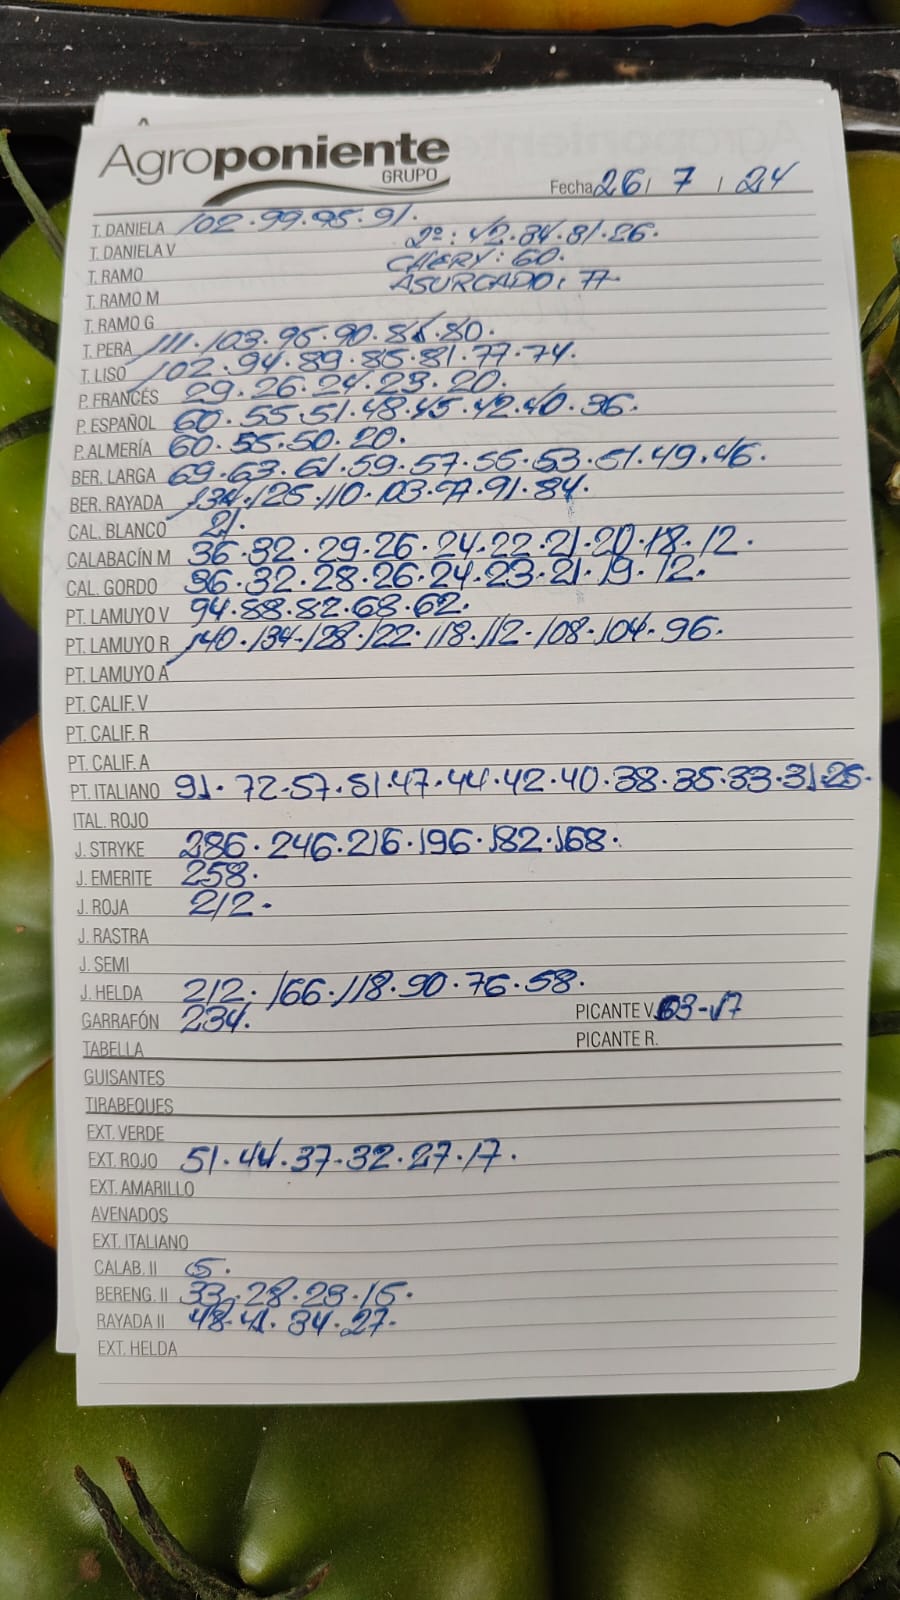 Agroponiente
GRUPO
Fecha 26 / 7 / 24
T. DANIELA 102.99.95.91.
T. DANIELA V 2º: 42.34.31.26.
T. RAMO CHERY: 60.
T. RAMO M ASURCADO: 77.
T. RAMO G
T. PERA 111.103.95.90.85.80.
T. LISO 102.94.89.85.81.77.74.
P. FRANCÉS 29.26.24.23.20.
P. ESPAÑOL 60.55.51.48.45.42.40.36.
P. ALMERÍA 60.55.50.20.
BER. LARGA 69.63.61.59.57.55.53.51.49.46.
BER. RAYADA 134.125.110.103.97.91.84.
CAL. BLANCO 21.
CALABACÍN M 36.32.29.26.24.22.21.20.18.12.
CAL. GORDO 36.32.28.26.24.23.21.19.12.
PT. LAMUYO V 94.88.82.68.62.
PT. LAMUYO R 140.134.128.122.118.112.108.104.96.
PT. LAMUYO A
PT. CALIF. V
PT. CALIF. R
PT. CALIF. A
PT. ITALIANO 91.72.57.51.47.44.42.40.38.35.33.31.25.
ITAL. ROJO
J. STRYKE 286.246.216.196.182.168.
J. EMERITE 258.
J. ROJA 212.
J. RASTRA
J. SEMI
J. HELDA 212.166.118.90.76.58.
GARRAFÓN 234. PICANTE V. 63-17
TABELLA PICANTE R.
GUISANTES
TIRABEQUES
EXT. VERDE
EXT. ROJO 51.44.37.32.27.17.
EXT. AMARILLO
AVENADOS
EXT. ITALIANO
CALAB. II 5.
BERENG. II 33.28.23.15.
RAYADA II 48.41.34.27.
EXT. HELDA